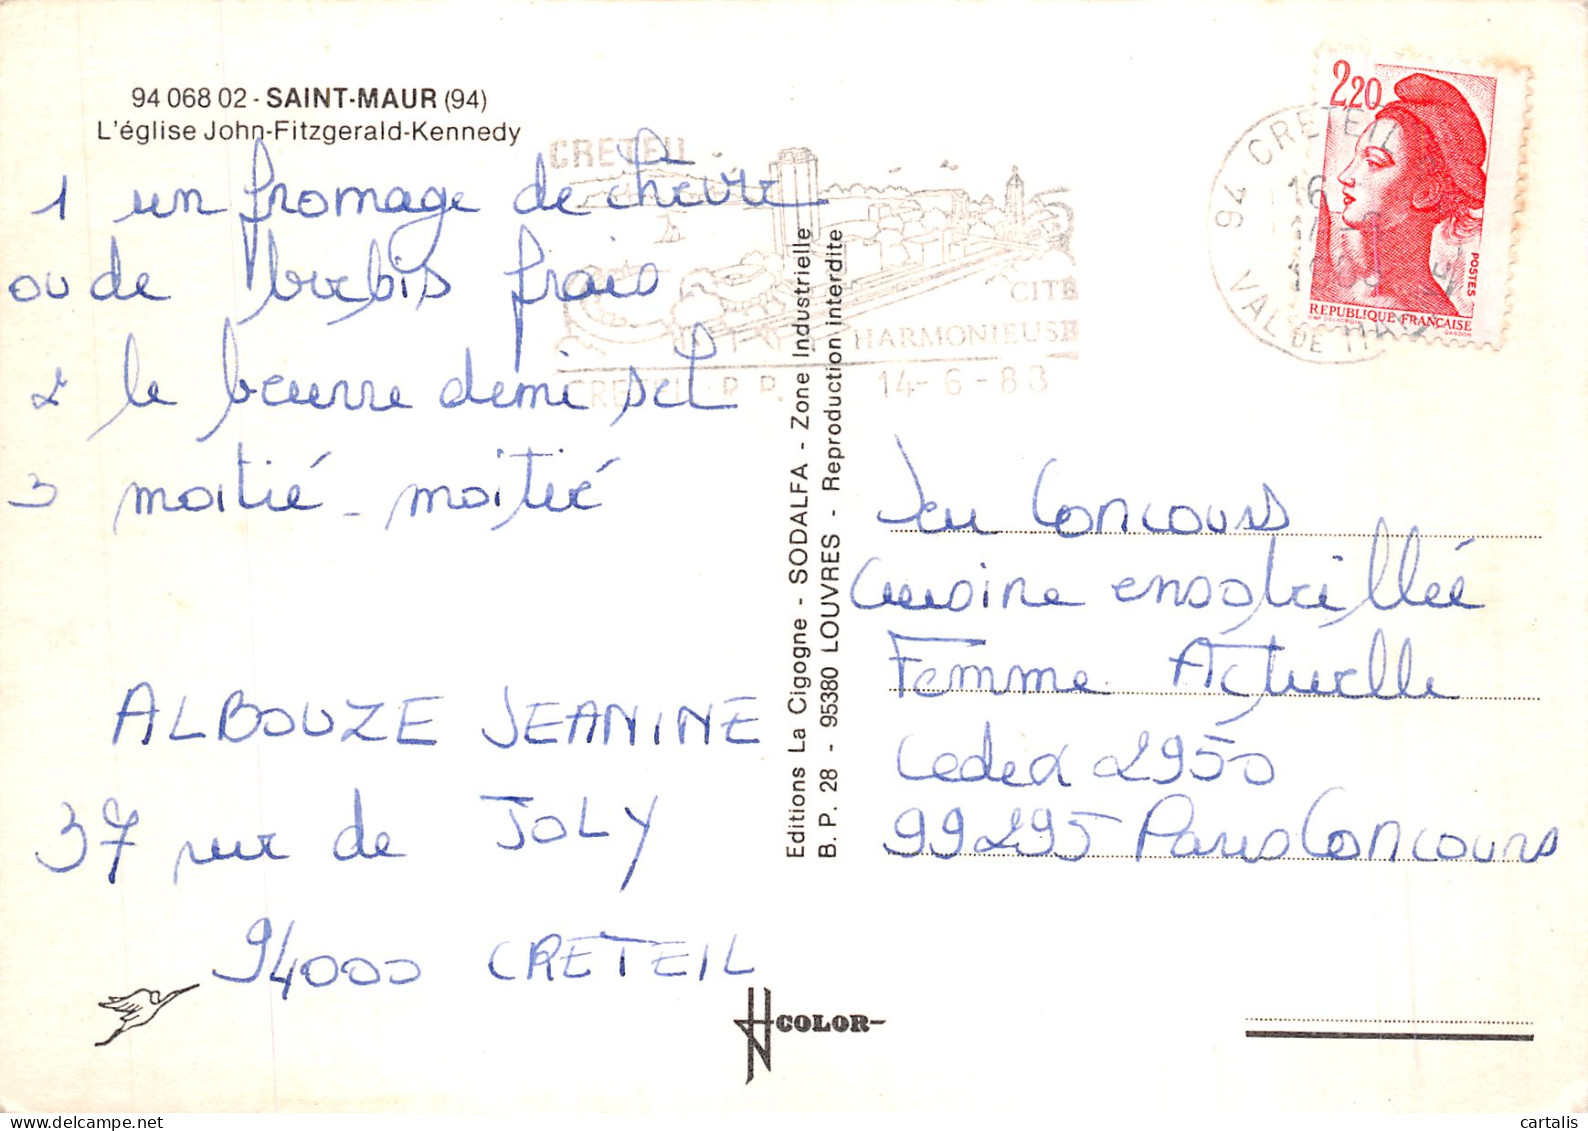 94 068 02 - SAINT-MAUR (94)
L'église John-Fitzgerald-Kennedy
1 un fromage de chevre
ou de brebis frais
2 le beurre demi sel
3 moitié - moitié
ALBOUZE JEANINE
37 rue de JOLY
94000 CRETEIL
COLOR
Editions La Cigogne - SODALFA - Zone Industrielle
B. P. 28 - 95380 LOUVRES - Reproduction interdite
CRETEIL
CITE
HARMONIEUSE
CRETEIL R.P. 14-6-88
94 CRETEIL
16
VAL DE
2,20
POSTES
REPUBLIQUE FRANÇAISE
Jeu Concours
Cuisine ensoleillée
Femme Actuelle
Cedex 2950
99295 Paris Concours
www.delcampe.net
cartalis